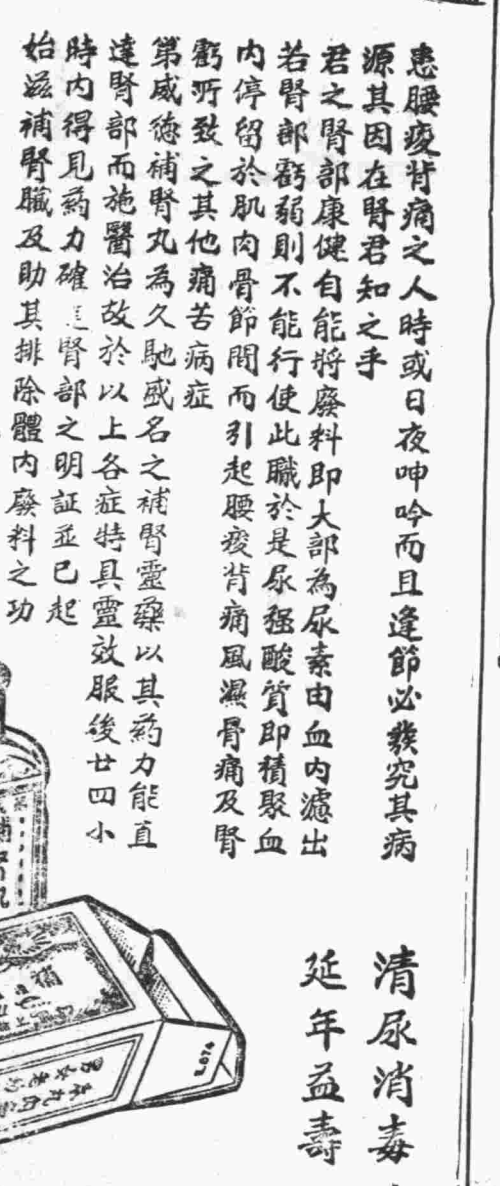 患腰痠背痛之人時或日夜呻吟而且逢節必發究其病
源其因在腎君知之乎
君之腎部康健自能將廢料即大部為尿素由血內濾出
若腎部虧弱則不能行使此職於是尿強酸質即積聚血
內停留於肌肉骨節間而引起腰痠背痛風濕骨痛及腎
虧所致之其他痛苦病症
第威德補腎丸為久馳盛名之補腎靈藥以其药力能直
達腎部而施醫治故於以上各症特具靈效服後廿四小
時內得見药力確達腎部之明証並已起
始滋補腎臟及助其排除體內廢料之功
清尿消毒
延年益壽